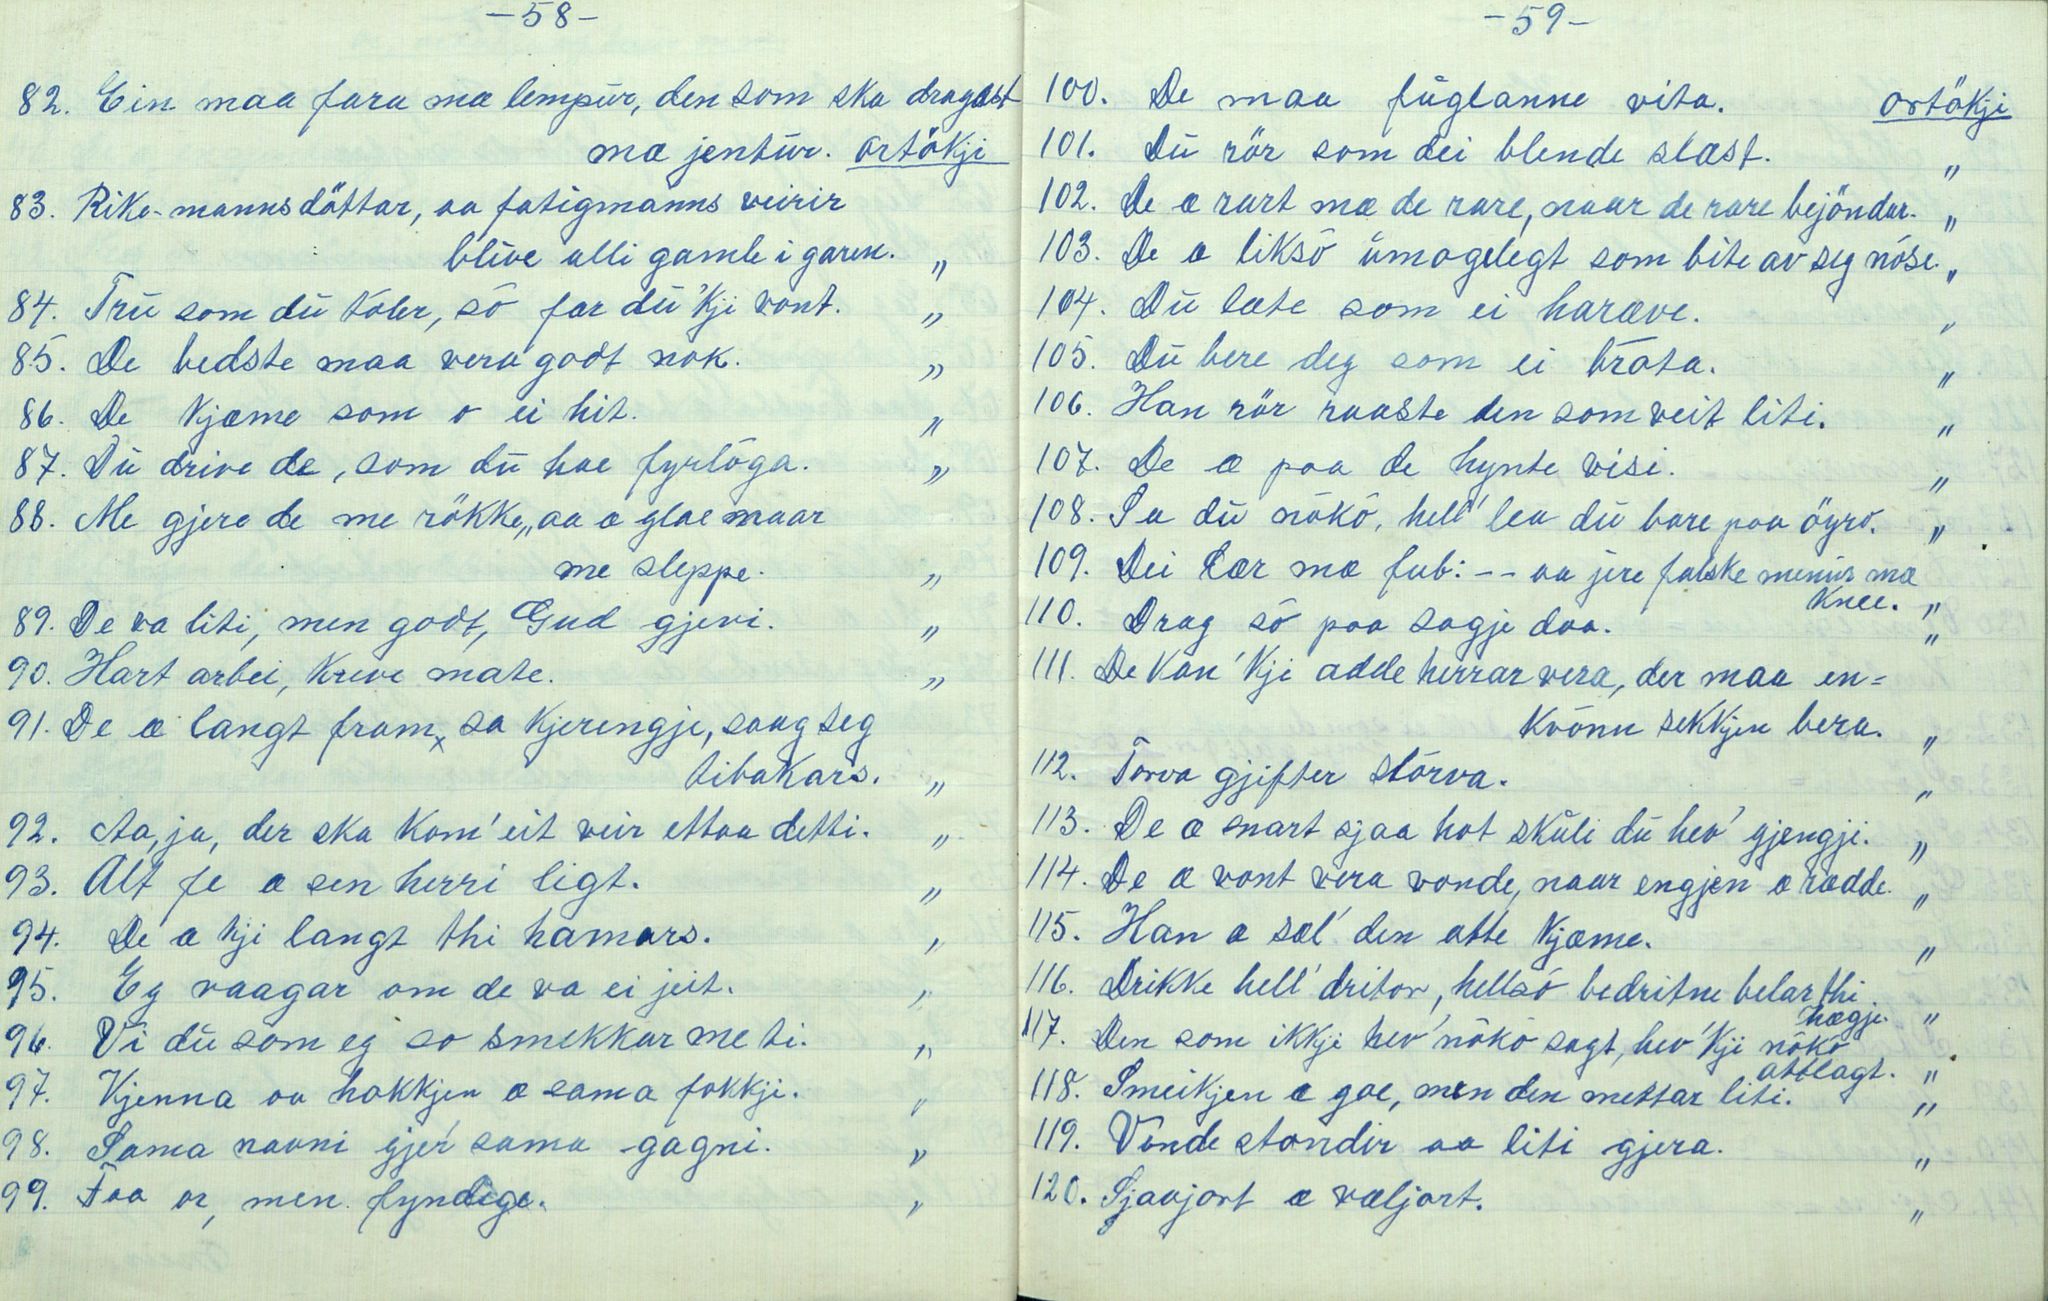 -58-
82. Ein maa fara mæ lempür, den som ska dragast
mæ jentür. ortökji
83. Rike-mannsdöttar, aa fatigmanns veirir
blive alli gamle i garen. „
84. Trü som dü toler, sö fær dü 'kji vont. „
85. De bedste maa vera godt nok. „
86. De kjæme som o ei hit. „
87. Dü drive de, som dü hae fyrlöga. „
88. Me gjere de me rökke, „aa æ glae naar
me sleppe. „
89. De va liti, men godt, Gud gjevi. „
90. Hart arbei, kreve mate. „
91. De æ langt fram, sa kjeringje, saag seg
tibakars. „
92. Aa, ja, der ska kom' eit veir ettaa detti. „
93. Alt fe æ sen herri ligt. „
94. De æ kji langt thi hamars. „
95. Eg vaagar om de va ei jeit. „
96. Vi dü som eg so smekkar me ti. „
97. Kjenna aa hakkjen æ sama fokkji. „
98. Sama navni gjer' sama gagni. „
99. Faa or, men fyndige. „
-59-
100. De maa füglanne vita. ortökji
101. Dü rör som dei blende slæst. „
102. De æ rart mæ de rare, naar de rare bejöndar. „
103. De æ liksö ümogelegt som bite av seg nöse. „
104. Dü læte som ei haræve. „
105. Dü bere deg som ei bröta. „
106. Han rör raaste den som veit liti. „
107. De æ paa de hynte visi. „
108. Sa dü nökö, hell' lea dü bare paa öyro. „
109. Dei lær mæ fub: -- aa jere falske menür mæ
knee. „
110. Drag sö paa sagje daa. „
111. De kan 'kji adde herrar vera, der maa en=
kvönn sekkjen bera. „
112. Torva gjifter storva. „
113. De æ snart sjaa hot sküli dü hev' gjengji. „
114. De æ vont vera vonde, naar engjen æ rædde. „
115. Han æ sæl' den atte kjæme. „
116. Drikke hell' dritar, hellsö bedritne belar thi
hægje. „
117. Den som ikkje hev' nökö sagt, hev' 'kji nökö
attlagt. „
118. Smeikjen æ goe, men den mettar liti. „
119. Vonde stondir aa liti gjera. „
120. Sjaavjort æ væljort. „